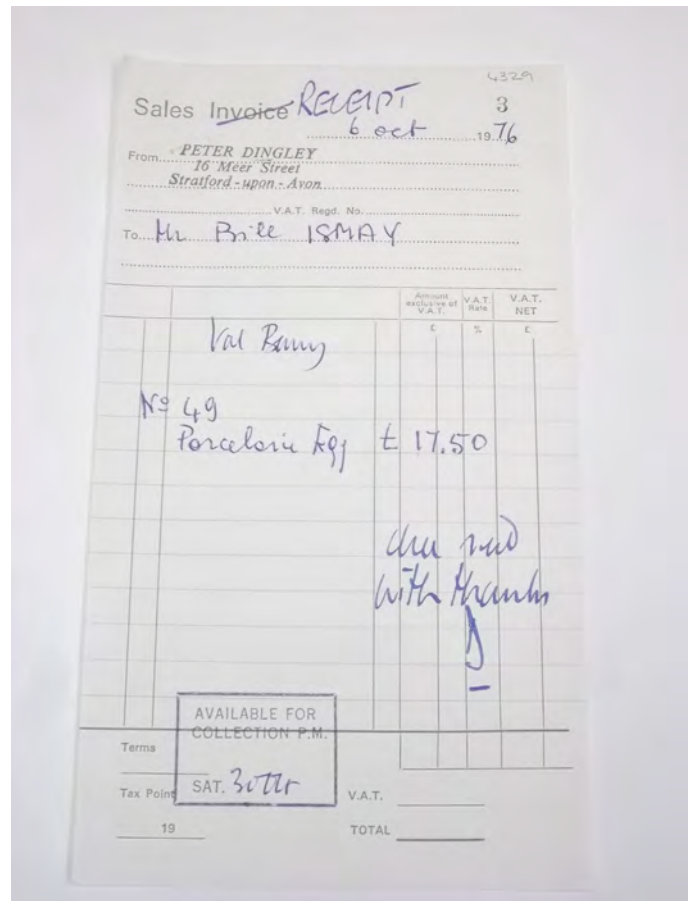 4329
Sales Invoice RECEIPT 3
6 oct 1976
From PETER DINGLEY
16 Meer Street
Stratford-upon-Avon
V.A.T. Regd. No.
To Mr Bill ISMAY
Amount exclusive of V.A.T. V.A.T. Rate V.A.T. NET
£ % £
Val Barry
Nº 49
Porcelain Egg £ 17.50
with thanks
AVAILABLE FOR
COLLECTION P.M.
Terms
SAT. 30th
Tax Point V.A.T.
19 TOTAL